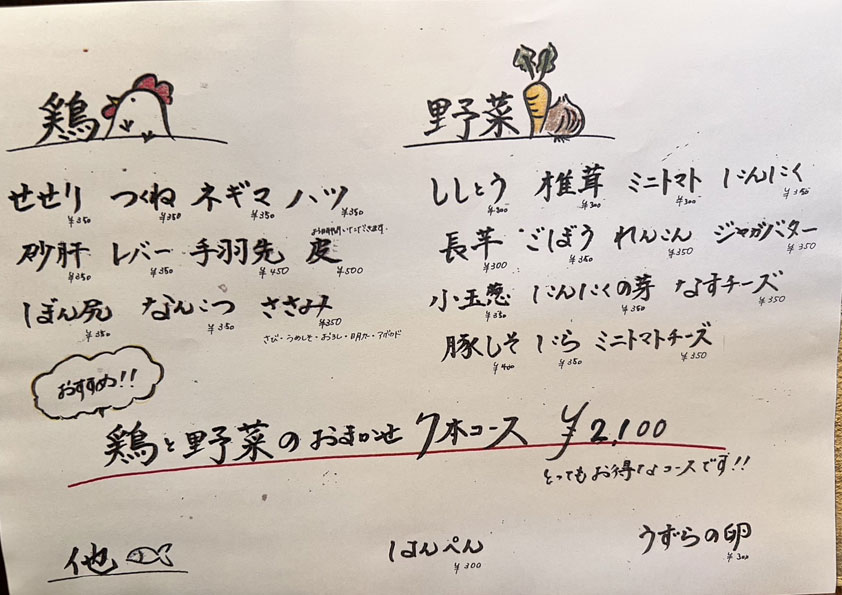 鶏
野菜
せせり ¥350 つくね ¥350 ネギマ ¥350 ハツ ¥350
お時間いただきます
砂肝 ¥350 レバー ¥350 手羽先 ¥450 皮 ¥500
ぼん尻 ¥350 なんこつ ¥350 ささみ ¥350
さび・うめしそ・おろし・明太・アボカド
ししとう ¥300 椎茸 ¥300 ミニトマト ¥300 にんにく ¥350
長芋 ¥300 ごぼう ¥350 れんこん ¥350 ジャガバター ¥350
小玉葱 ¥350 にんにくの芽 ¥350 なすチーズ ¥350
豚しそ ¥400 にら ¥350 ミニトマトチーズ ¥350
おすすめ!!
鶏と野菜のおまかせ 7本コース ¥2,100
とってもお得なコースです!!
他
はんぺん ¥300
うずらの卵 ¥300